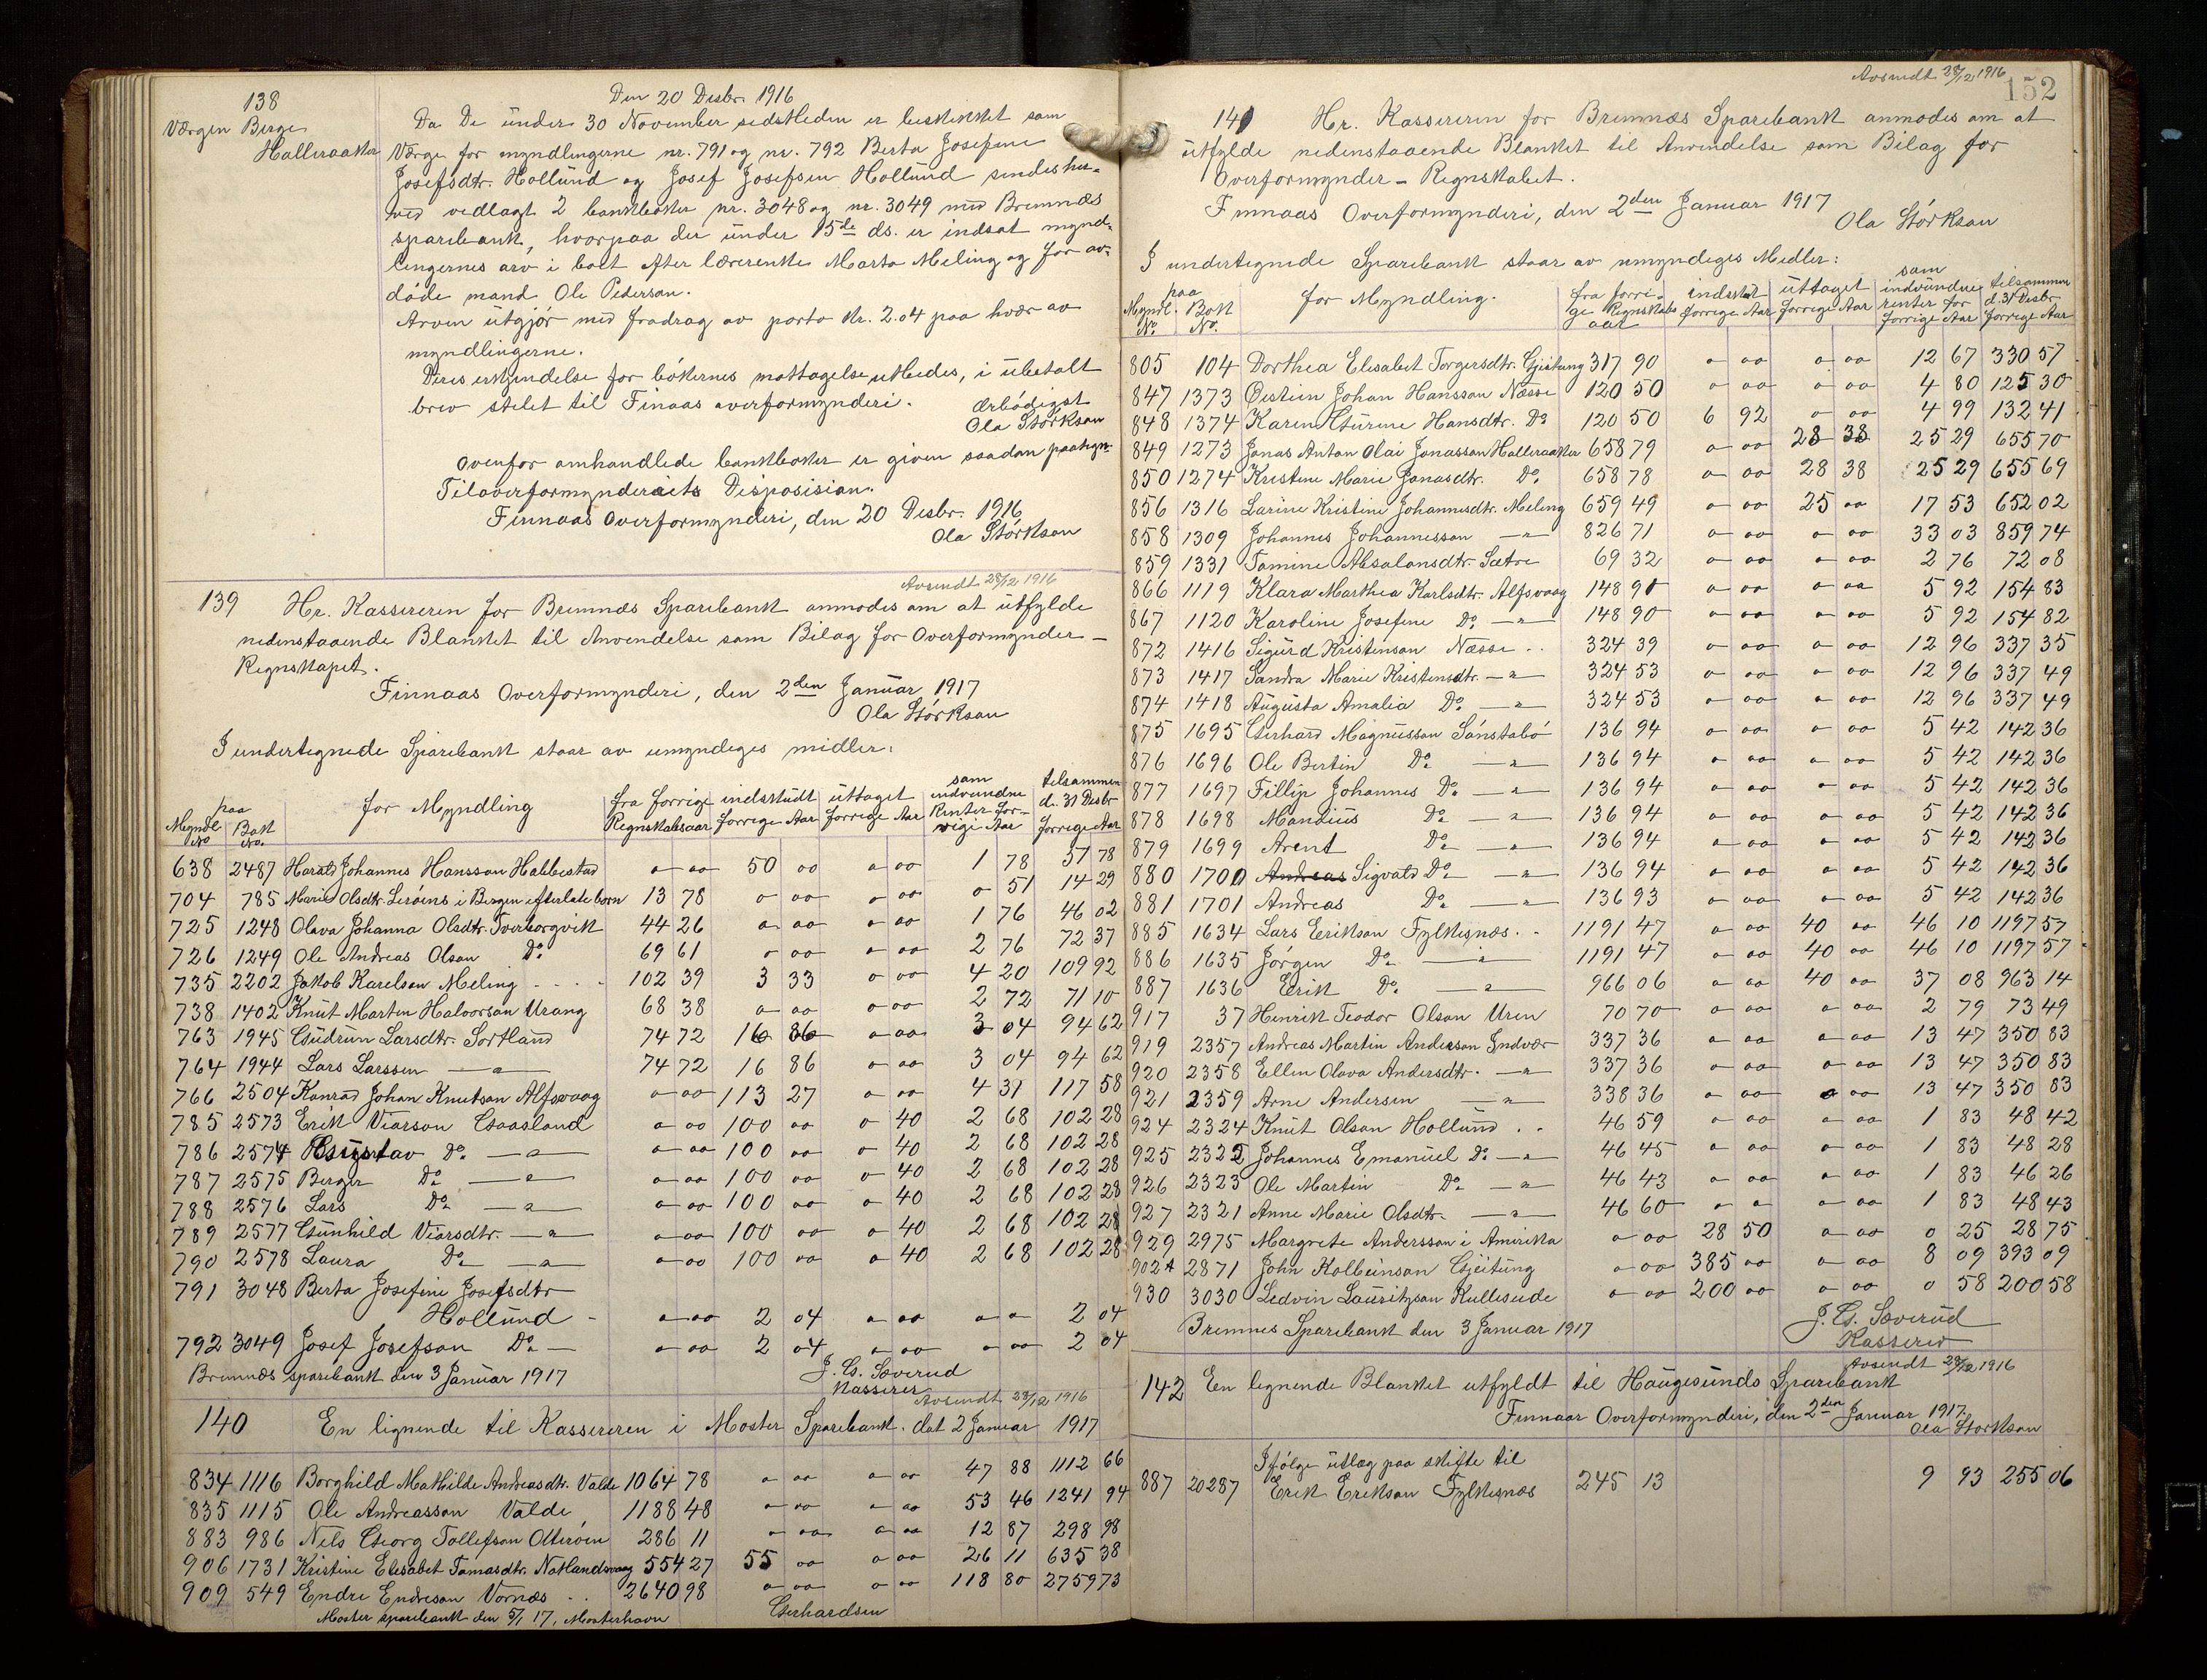 138
Værgen Berge
Halleraaker
Den 20 Desbr. 1916
Da De under 30 November sidstleden er beskikket som
Værge for myndlingerne nr. 791 og nr. 792 Berta Josefine
Josefsdtr. Hollund og Josef Josefsen Hollund sendes her-
ved vedlagt 2 bankbøker nr. 3048 og nr. 3049 med Bremnæs
sparebank, hvorpaa der under 15de ds. er indsat mynd-
lingernes arv i bolt efter lærerenke Marta Meling og før av-
døde mand Ole Pederson.
Arven utgjør med fradrag av porto kr. 2.04 paa hvær av
myndlingerne.
Deres erkjendelse for bøkernes mottagelse utbedes, i ubetalt
brev stilet til Finaas overformynderi.
Ærbødigst
Ola Størkson
Ovenfor omhandlede bankbøker er given saadan paategn.
Til overformynderiets Disposision.
Finnaas Overformynderi, den 20 Desbr. 1916
Ola Størkson
Avsendt 28/12 1916
139 Hr. Kassereren for Bremnæs Sparebank anmodes om at utfylde
nedenstaaende Blanket til Anvendelse som Bilag for Overformynder-
Regnskapet.
Finnaas Overformynderi, den 2den Januar 1917
Ola Størkson
I undertegnede Sparebank staar av umyndiges midler:
Myndl. No paa Bok No. for Myndling fra forrige Regnskabsaar indskudt forrige Aar uttaget forrige Aar som indvundne Renter forrige Aar tilsammen d. 31 Desbr forrige Aar
638 2487 Harald Johannes Hansson Habbestad o oo 50 oo o oo 1 78 51 78
704 785 Marie Olsdtr. Lerøens i Bergen efterlate børn 13 78 o oo o oo o 51 14 29
725 1248 Olava Johanna Olsdtr. Tverborgvik 44 26 o oo o oo 1 76 46 02
726 1249 Ole Andreas Olson Do. 69 61 o oo o oo 2 76 72 37
735 2202 Jakob Karelson Meling 102 39 3 33 o oo 4 20 109 92
738 1402 Knut Martin Halvorson Urang 68 38 o oo o oo 2 72 71 10
763 1945 Gudrun Larsdtr. Sortland 74 72 16 86 o oo 3 04 94 62
764 1944 Lars Larssen —"— 74 72 16 86 o oo 3 04 94 62
766 2504 Konrad Johan Knutson Alfsvaag o oo 113 27 o oo 4 31 117 58
785 2573 Erik Viarson Gaasland o oo 100 oo o 40 2 68 102 28
786 2574 Gustav Do. —"— o oo 100 oo o 40 2 68 102 28
787 2575 Berger Do. —"— o oo 100 oo o 40 2 68 102 28
788 2576 Lars Do. —"— o oo 100 oo o 40 2 68 102 28
789 2577 Gunhild Viarsdtr. —"— o oo 100 oo o 40 2 68 102 28
790 2578 Laura Do. —"— o oo 100 oo o 40 2 68 102 28
791 3048 Berta Josefine Josefsdtr
Hollund o oo 2 04 o oo o o 2 04
792 3049 Josef Josefson Do. — o oo 2 04 o oo o oo 2 04
Bremnæs sparebank den 3 Januar 1917
J. G. Sæverud
Kasserer
Avsendt 23/12 1916
140 En lignende til Kassereren i Moster Sparebank. dat 2 Januar 1917
834 1116 Borghild Mathilde Andreasdtr. Valde 1064 78 o oo o oo 47 88 1112 66
835 1115 Ole Andreasson Valde 1188 48 o oo o oo 53 46 1241 94
883 986 Nils Georg Tollefson Otterøen 286 11 o oo o oo 12 87 298 98
906 1731 Kristine Elisabet Tomasdtr. Notlandsvaag 554 27 55 oo o oo 26 11 635 38
909 549 Endre Endreson Vornæs 2640 98 o oo o oo 118 80 2759 73
Moster sparebank den 5/1 17, Mosterhavn
Gerhardsen
Avsendt 28/12 1916
152
141 Hr. Kassereren for Bremnæs Sparebank anmodes om at
utfylde nedenstaaende Blanket til Anvendelse som Bilag for
Overformynder - Regnskabet.
Finnaas Overformynderi, den 2den Januar 1917
Ola Størkson
I undertegnede Sparebank staar av umyndiges Medler:
Myndl. No. paa Bok No. for Myndling. fra forrige Regnskabsaar indskut forrige Aar uttaget forrige Aar som indvundne renter for forrige Aar tilsammen d. 31 Desbr forrige Aar
805 104 Dorthea Elisabet Torgersdtr. Gjeitung 317 90 o oo o oo 12 67 330 57
847 1373 Øistein Johan Hansson Næsse 120 50 o oo o oo 4 80 125 30
848 1374 Karen Gurine Hansdtr. Do 120 50 6 92 o oo 4 99 132 41
849 1273 Jonas Anton Olai Jonasson Halleraaker 658 79 o oo 28 38 25 29 655 70
850 1274 Kristine Marie Jonasdtr. Do. 658 78 o oo 28 38 25 29 655 69
856 1316 Larine Kristine Johannesdtr. Meling 659 49 o oo 25 oo 17 53 652 02
858 1309 Johannes Johannesson —"— 826 71 o oo o oo 33 03 859 74
859 1331 Tomine Absalonsdtr. Sætre 69 32 o oo o oo 2 76 72 08
866 1119 Klara Marthea Karlsdtr. Alfsvaag 148 91 o oo o oo 5 92 154 83
867 1120 Karoline Josefine Do. —"— 148 90 o oo o oo 5 92 154 82
872 1416 Sigurd Kristenson Næsse 324 39 o oo o oo 12 96 337 35
873 1417 Sandra Marie Kristensdtr. —"— 324 53 o oo o oo 12 96 337 49
874 1418 Augusta Amalia Do. —"— 324 53 o oo o oo 12 96 337 49
875 1695 Gerhard Magnusson Sønstabø 136 94 o oo o oo 5 42 142 36
876 1696 Ole Bertin Do. —"— 136 94 o oo o oo 5 42 142 36
877 1697 Fillip Johannes Do. —"— 136 94 o oo o oo 5 42 142 36
878 1698 Mandius Do. —"— 136 94 o oo o oo 5 42 142 36
879 1699 Arent Do. —"— 136 94 o oo o oo 5 42 142 36
880 1700 Andreas Sigvald Do. —"— 136 94 o oo o oo 5 42 142 36
881 1701 Andreas Do. —"— 136 93 o oo o oo 5 42 142 36
885 1634 Lars Erikson Fylkesnæs 1191 47 o oo 40 oo 46 10 1197 57
886 1635 Jørgen Do. —"— 1191 47 o oo 40 oo 46 10 1197 57
887 1636 Erik Do. —"— 966 06 o oo 40 oo 37 08 963 14
917 37 Henrik Teodor Olson Uren 70 70 o oo o oo 2 79 73 49
919 2357 Andreas Martin Anderson Indvær 337 36 o oo o oo 13 47 350 83
920 2358 Ellen Olava Andersdtr. —"— 337 36 o oo o oo 13 47 350 83
921 2359 Arne Andersen —"— 338 36 o oo o oo 13 47 350 83
924 2324 Knut Olson Hollund 46 59 o oo o oo 1 83 48 42
925 2322 Johannes Emanuel Do. —"— 46 45 o oo o oo 1 83 48 28
926 2323 Ole Martin Do. —"— 46 43 o oo o oo 1 83 46 26
927 2321 Anne Marie Olsdtr. —"— 46 60 o o o oo 1 83 48 43
929 2975 Margrete Andersson i Amirika o oo 28 50 o oo o 25 28 75
902A 2871 John Kolbeinson Gjeitung o oo 385 oo o oo 8 09 393 09
930 3030 Ledvin Lauritzson Kulleseide o oo 200 oo o oo o 58 200 58
Bremnes Sparebank den 3 Januar 1917
J. G. Sæverud
Kasserer
Avsendt 28/12 1916
142 En lignende Blanket utfyldt til Haugesunds Sparebank
Finnaas Overformynderi, den 2den Januar 1917.
Ola Størkson
Ifølge utlæg paa skifte til
887 20287 Erik Erikson Fylkesnæs 245 13 9 93 255 06